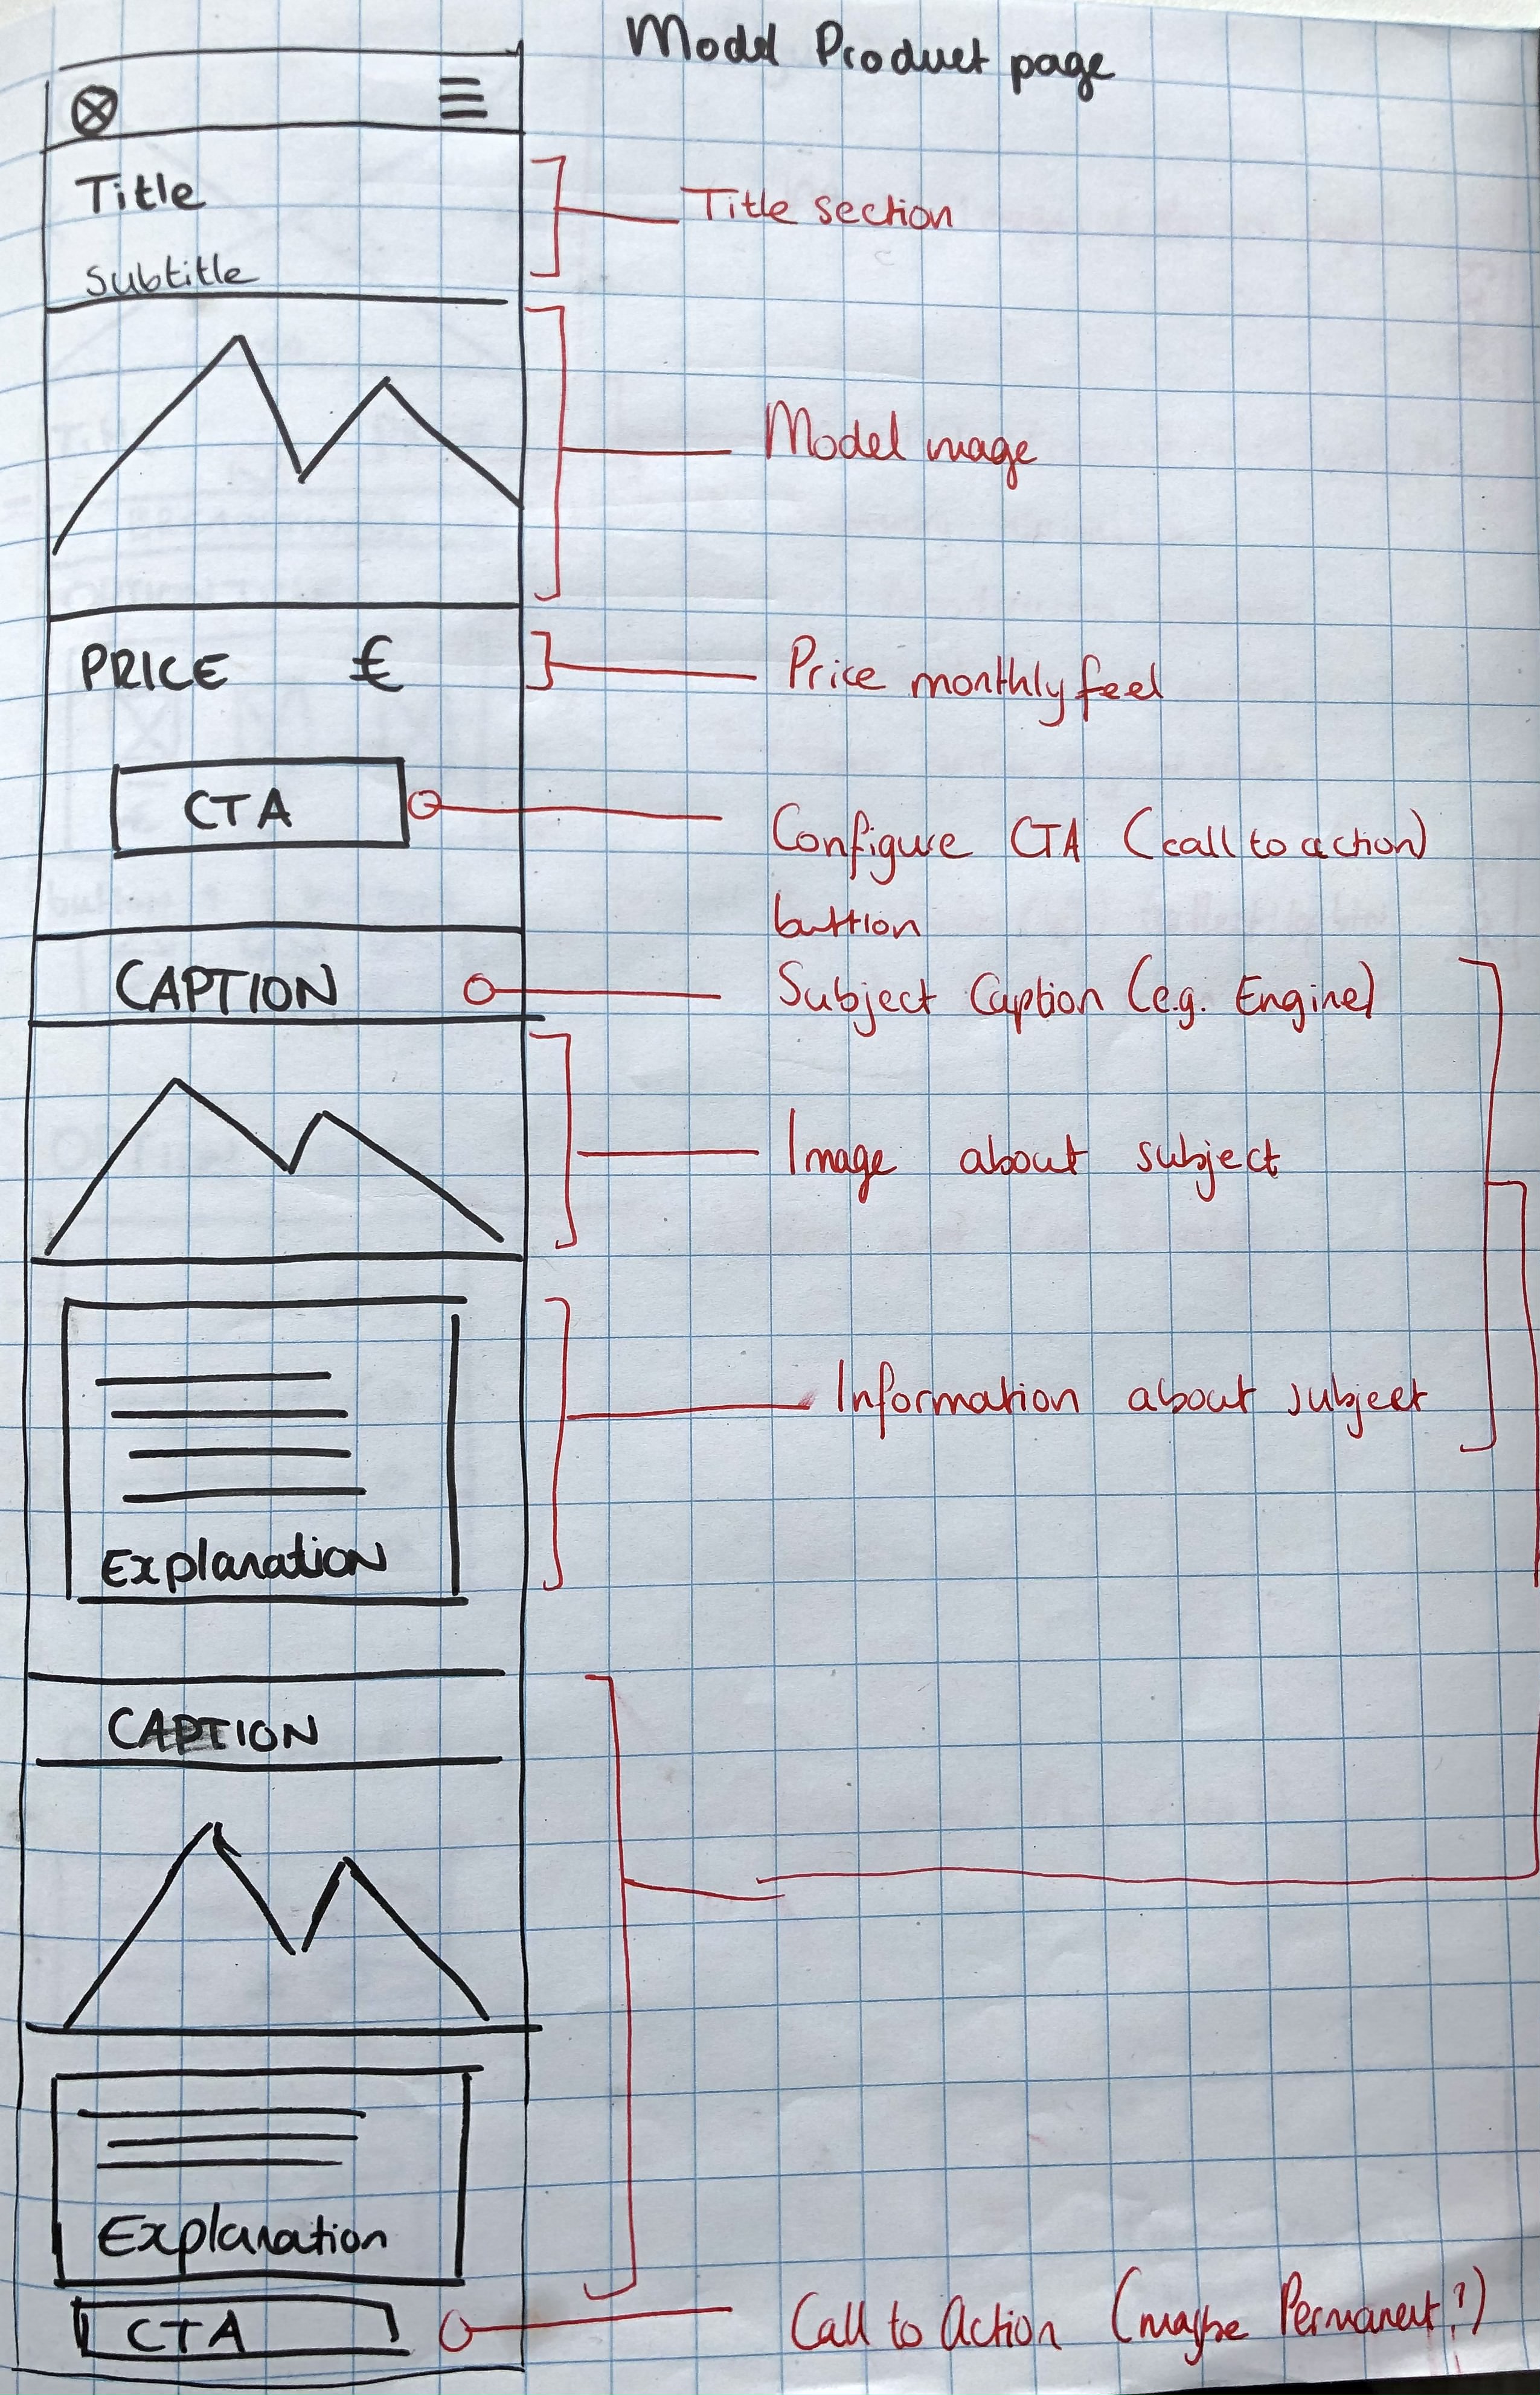 Model Product page
Title
Title section
Subtitle
Model image
PRICE €
Price monthly feel
CTA
Configure CTA (call to action)
buttion
CAPTION
Subject Caption (e.g. Engine)
Image about subject
Information about subject
Explanation
CAPTION
Explanation
CTA
Call to Action (maybe Permanent?)